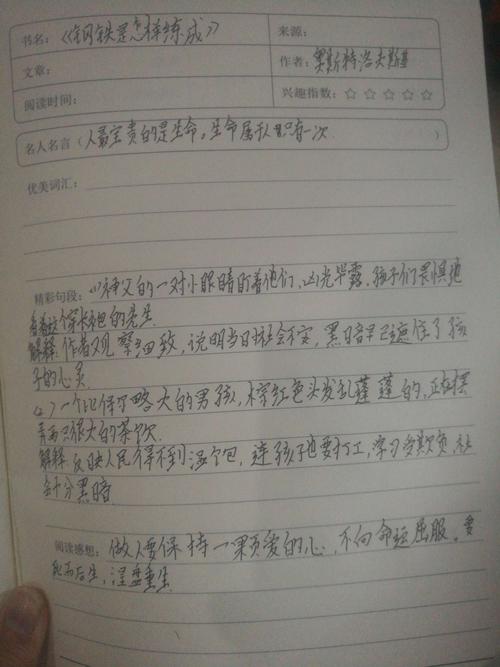 书名：《钢铁是怎样练成》
来源：
文章：
作者：奥斯特洛夫斯基
阅读时间：
兴趣指数：☆ ☆ ☆ ☆ ☆
名人名言（人最宝贵的是生命，生命属于人只有一次）
优美词汇：
精彩句段：(1)神父的一对小眼睛盯着他们，凶光毕露，孩子们畏惧地
看着这个穿长袍的先生
解释：作者观察细致，说明当时社会不安，黑暗早已遮住了孩
子的心灵
(2)一个比保尔略大的男孩，棕红色头发乱蓬蓬的，正在摆
弄两只很大的茶炊
解释：反映人民得不到温饱，连孩子也要打工，
会十分黑暗
阅读感想：做人要保持一颗爱的心，不向命运屈服。要
死而后生，涅盘重生